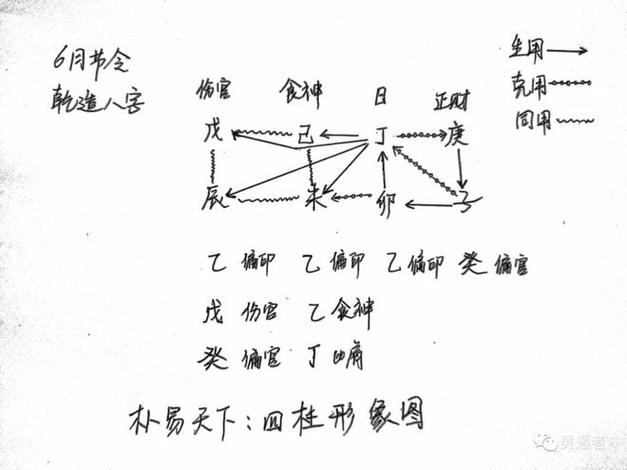 6月节令
乾造八字
生用
克用
同用
伤官 食神 日 正财
戊 己 丁 庚
辰 未 卯 子
乙 偏印 乙 偏印 乙 偏印 癸 偏官
戊 伤官 乙 食神
癸 偏官 丁 比肩
朴易天下:四柱形象图
灵通者